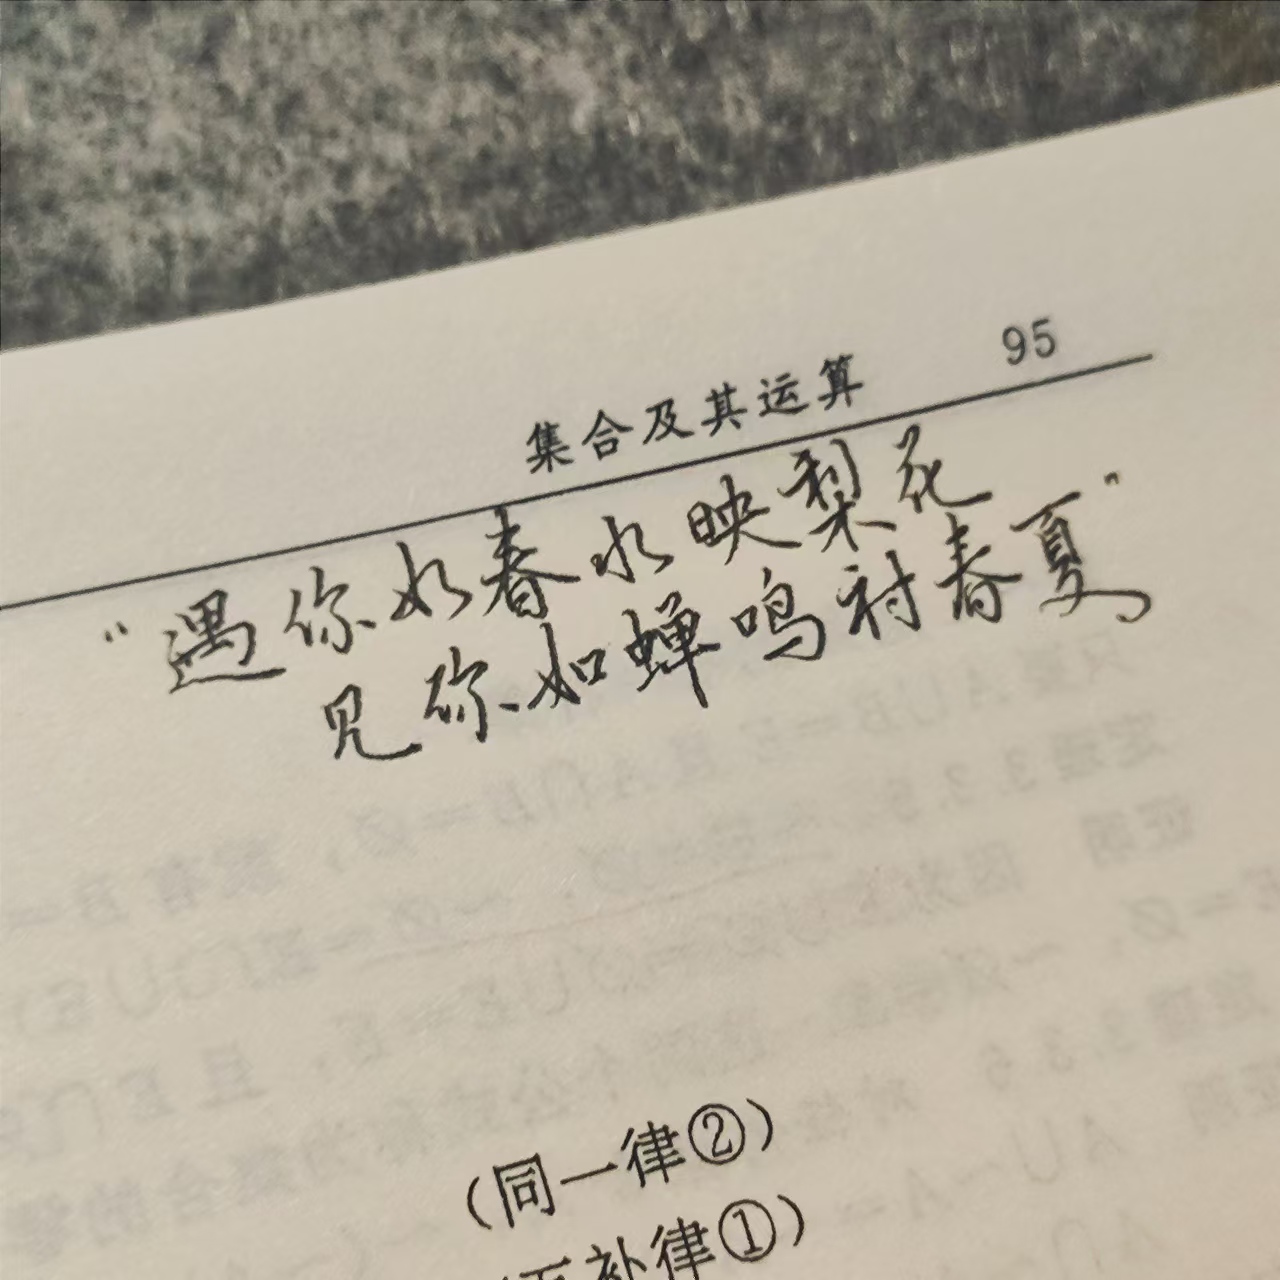 集合及其运算 95
“遇你如春水映梨花
见你如蝉鸣衬春夏”
(同一律②)
互补律①)